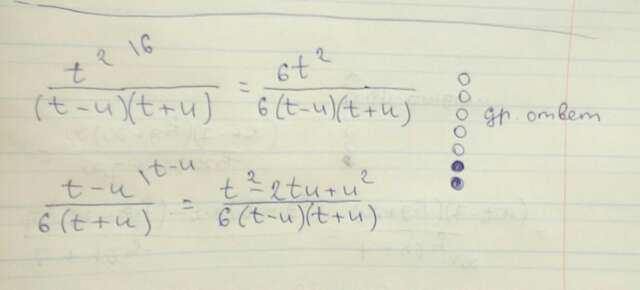 t² \6 / (t-u)(t+u) = 6t² / 6(t-u)(t+u)
др. ответ
t-u \t-u / 6(t+u) = t²-2tu+u² / 6(t-u)(t+u)